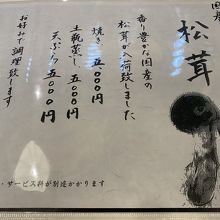 国産
松茸
香り豊かな国産の
松茸が入荷致しました
焼き 五、〇〇〇円
土瓶蒸し 五〇〇〇円
天ぷら 五〇〇〇円
お好みで調理致します
・サービス料が別途かかります